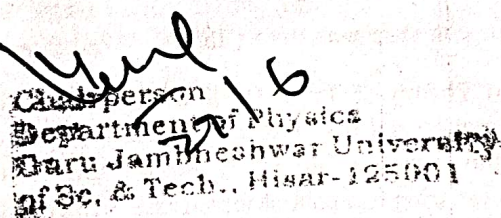 Chairperson
Department of Physics
Guru Jambheshwar University
of Sc. & Tech., Hisar-125001